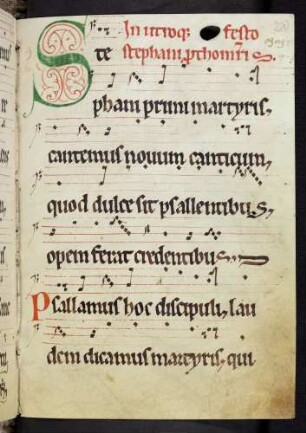 In utroq; festo
Ste stephani prthomris
phani primi martyris,
cantemus novum canticum,
quod dulce sit psallentibus,
opem ferat credentibus
Psallamus hoc discipuli, lau
dem dicamus martyris, qui